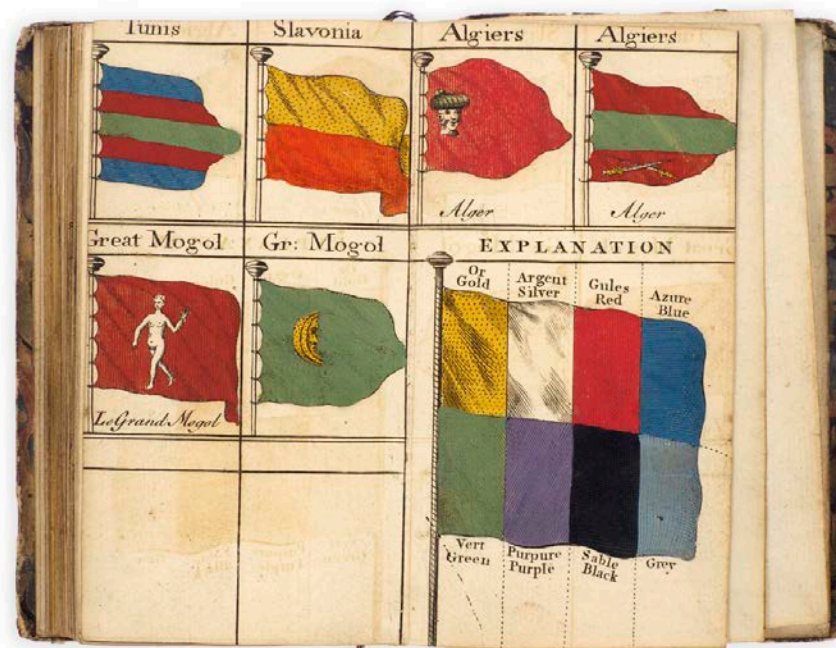 Tunis
Slavonia
Algiers
Algiers
Alger
Alger
Great Mogol
Gr: Mogol
EXPLANATION
Le Grand Mogol
Or
Gold
Argent
Silver
Gules
Red
Azure
Blue
Vert
Green
Purpure
Purple
Sable
Black
Grey